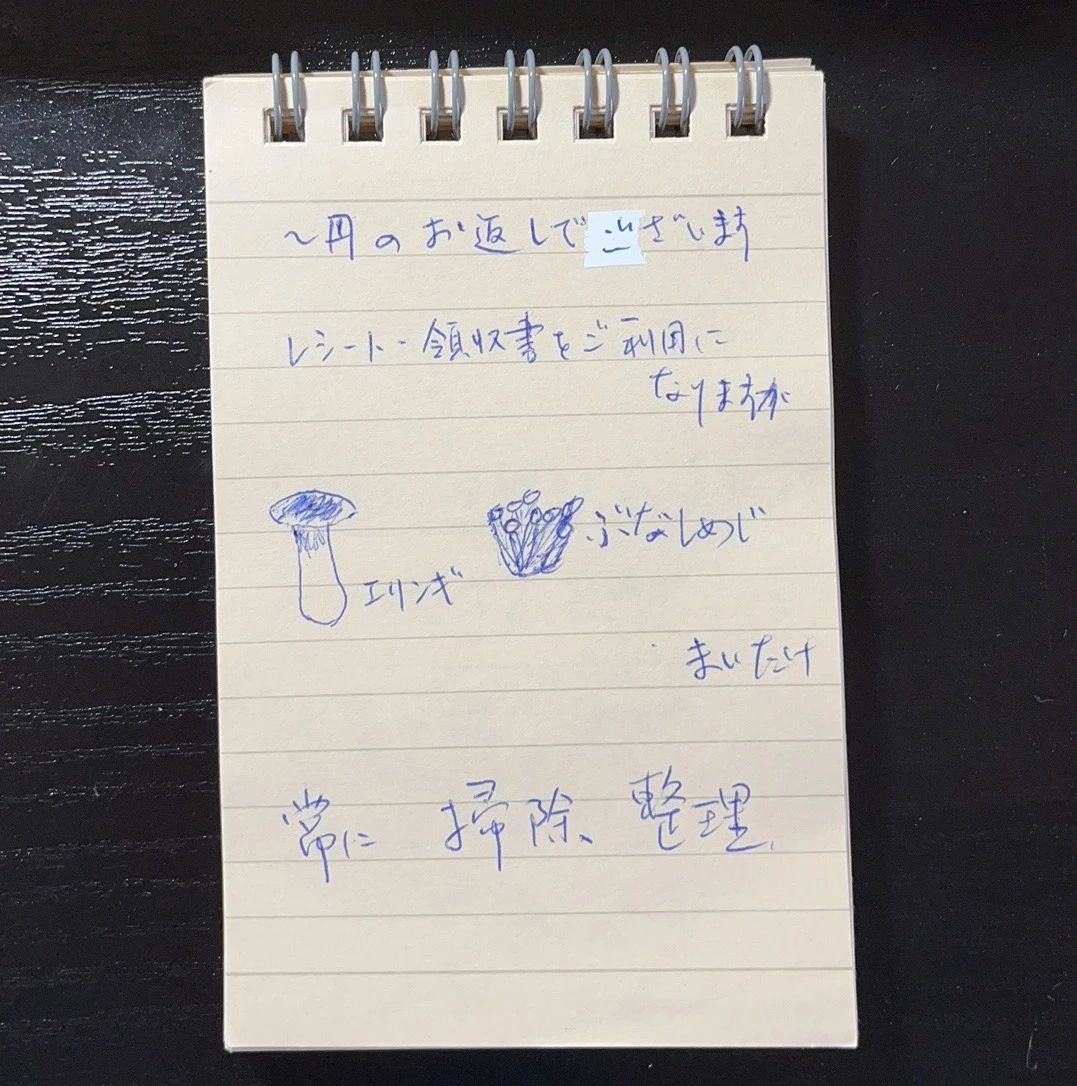 ～円のお返しでございます
レシート・領収書をご利用に
なりますか
エリンギ
ぶなしめじ
まいたけ
常に 掃除、整理、